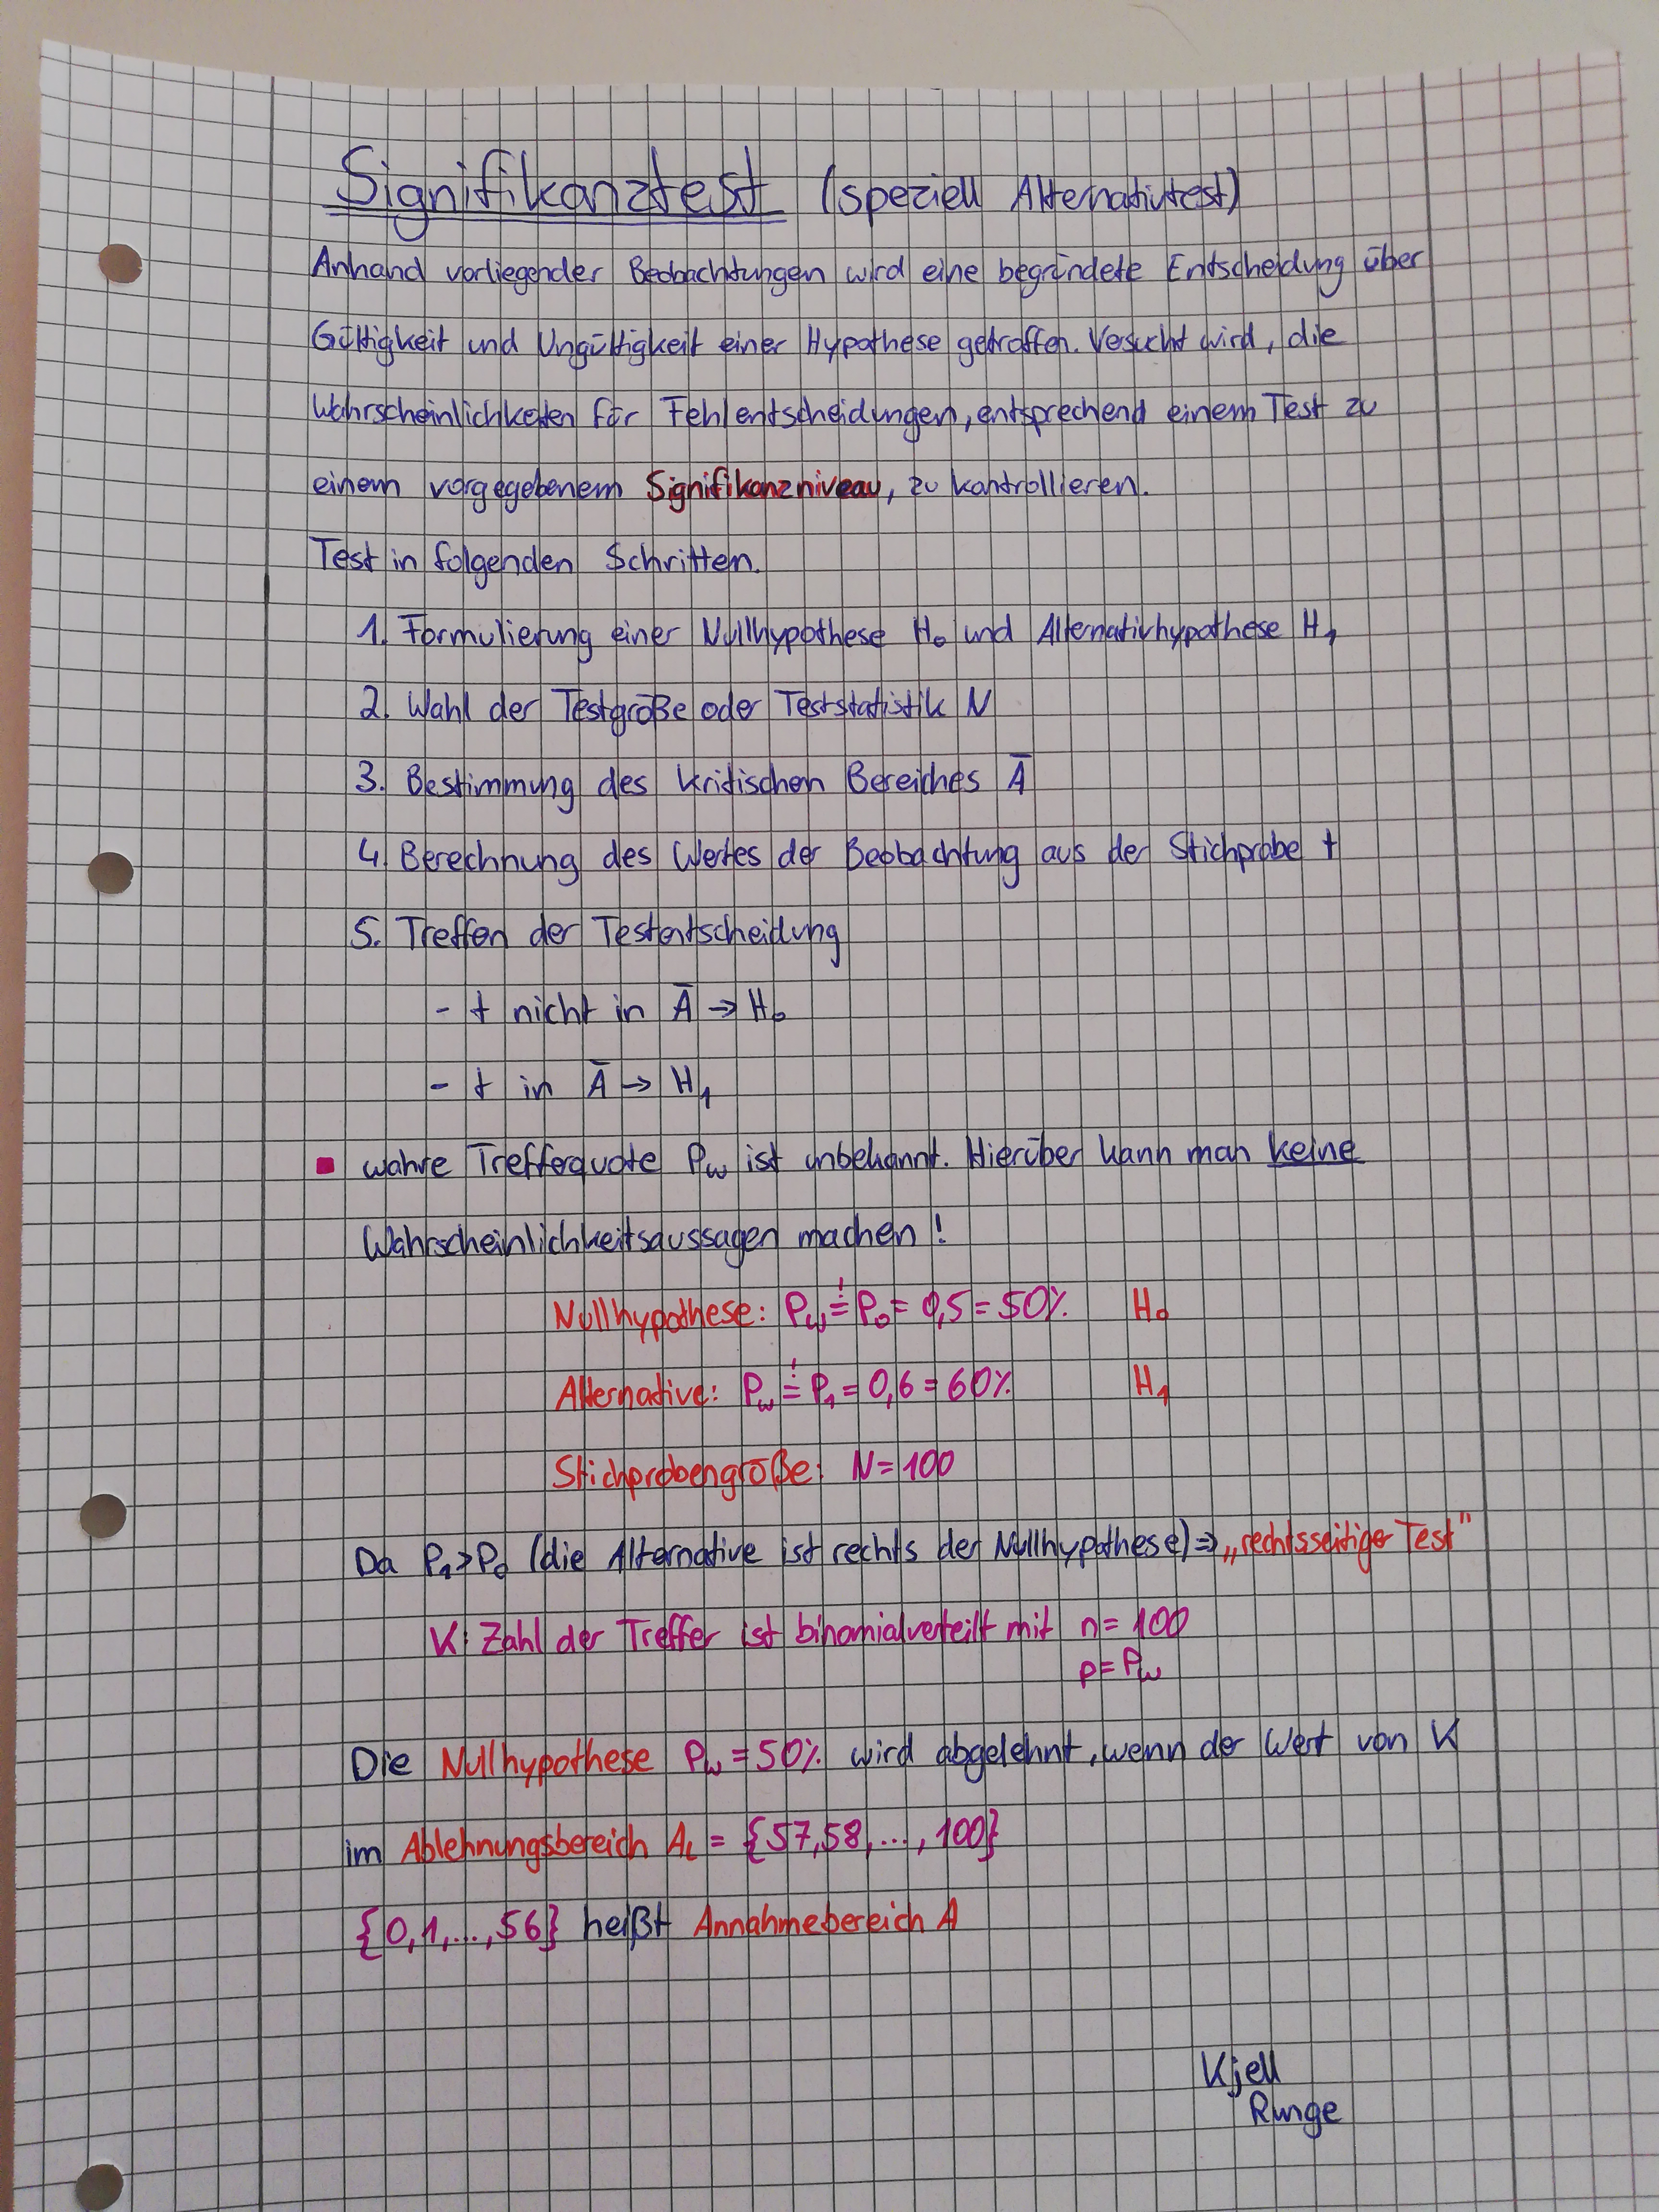 Signifikanztest (speziell Alternativtest)
Anhand vorliegender Beobachtungen wird eine begründete Entscheidung über
Gültigkeit und Ungültigkeit einer Hypothese getroffen. Versucht wird, die
Wahrscheinlichkeiten für Fehlentscheidungen, entsprechend einem Test zu
einem vorgegebenem Signifikanzniveau, zu kontrollieren.
Test in folgenden Schritten.
1. Formulierung einer Nullhypothese H₀ und Alternativhypothese H₁
2. Wahl der Testgröße oder Teststatistik N
3. Bestimmung des kritischen Bereiches Ā
4. Berechnung des Wertes der Beobachtung aus der Stichprobe t
5. Treffen der Testentscheidung
- t nicht in Ā → H₀
- t in Ā → H₁
▪ wahre Trefferquote Pw ist unbekannt. Hierüber kann man keine
Wahrscheinlichkeitsaussagen machen!
Nullhypothese: Pw =! P₀ = 0,5 = 50% H₀
Alternative: Pw =! P₁ = 0,6 = 60% H₁
Stichprobengröße: N = 100
Da P₁ > P₀ (die Alternative ist rechts der Nullhypothese) ⇒ „rechtsseitiger Test"
K: Zahl der Treffer ist binomialverteilt mit n = 100
p = Pw
Die Nullhypothese Pw = 50% wird abgelehnt, wenn der Wert von K
im Ablehnungsbereich AL = {57,58,...,100}
{0,1,...,56} heißt Annahmebereich A
Kjell
Runge